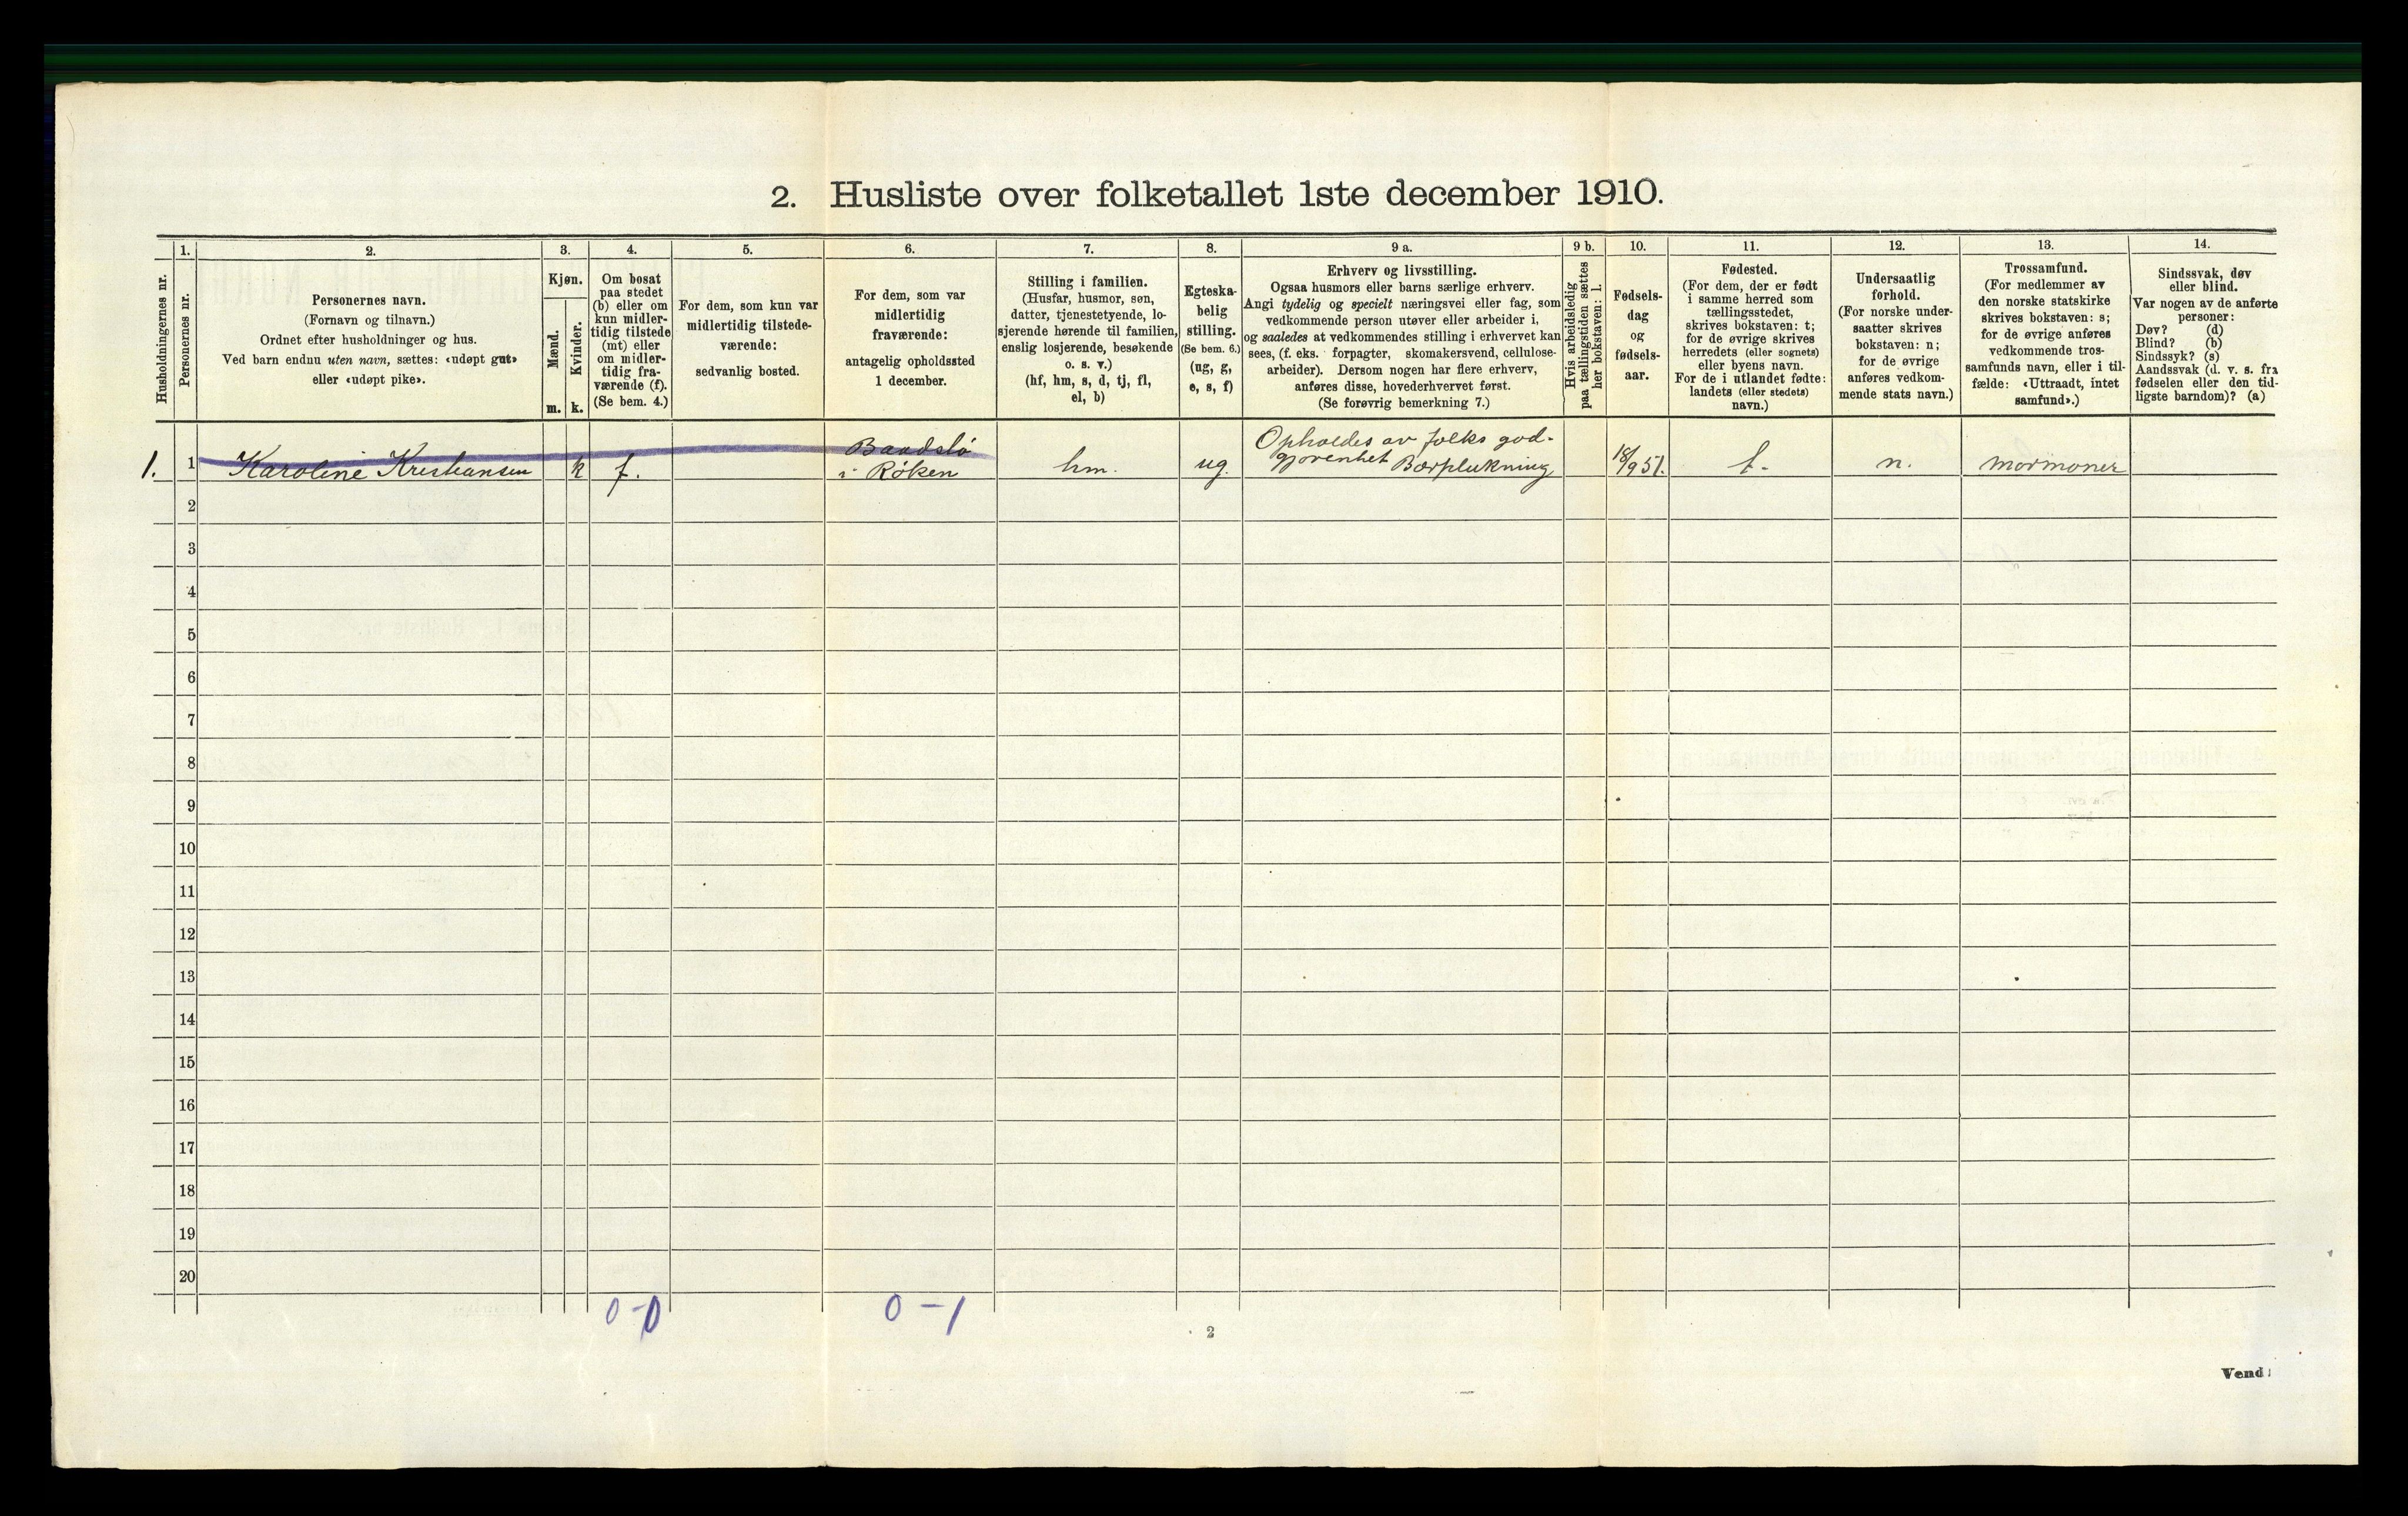 2. Husliste over folketallet 1ste december 1910.
Husholdningernes nr.
1.
Personernes nr.
2.
Personernes navn.
(Fornavn og tilnavn.)
Ordnet efter husholdninger og hus.
Ved barn endnu uten navn, sættes: «udøpt gut»
eller «udøpt pike».
3.
Kjøn.
Mænd.
m.
Kvinder.
k.
4.
Om bosat
paa stedet
(b) eller om
kun midler-
tidig tilstede
(mt) eller
om midler-
tidig fra-
værende (f).
(Se bem. 4.)
5.
For dem, som kun var
midlertidig tilstede-
værende:
sedvanlig bosted.
6.
For dem, som var
midlertidig
fraværende:
antagelig opholdssted
1 december.
7.
Stilling i familien.
(Husfar, husmor, søn,
datter, tjenestetyende, lo-
sjerende hørende til familien,
enslig losjerende, besøkende
o. s. v.)
(hf, hm, s, d, tj, fl,
el, b)
8.
Egteska-
belig
stilling.
(Se bem. 6.)
(ug, g,
e, s, f)
9 a.
Erhverv og livsstilling.
Ogsaa husmors eller barns særlige erhverv.
Angi tydelig og specielt næringsvei eller fag, som
vedkommende person utøver eller arbeider i,
og saaledes at vedkommendes stilling i erhvervet kan
sees, (f. eks. forpagter, skomakersvend, cellulose-
arbeider). Dersom nogen har flere erhverv,
anføres disse, hovederhvervet først.
(Se forøvrig bemerkning 7.)
9 b.
Hvis arbeidsledig
paa tællingstiden sættes
her bokstaven: l.
10.
Fødsels-
dag
og
fødsels-
aar.
11.
Fødested.
(For dem, der er født
i samme herred som
tællingsstedet,
skrives bokstaven: t;
for de øvrige skrives
herredets (eller sognets)
eller byens navn.
For de i utlandet fødte:
landets (eller stedets)
navn.)
12.
Undersaatlig
forhold.
(For norske under-
saatter skrives
bokstaven: n;
for de øvrige
anføres vedkom-
mende stats navn.)
13.
Trossamfund.
(For medlemmer av
den norske statskirke
skrives bokstaven: s;
for de øvrige anføres
vedkommende tros-
samfunds navn, eller i til-
fælde: «Uttraadt, intet
samfund».)
14.
Sindssvak, døv
eller blind.
Var nogen av de anførte
personer:
Døv? (d)
Blind? (b)
Sindssyk? (s)
Aandssvak (d. v. s. fra
fødselen eller den tid-
ligste barndom)? (a)
1. 1 Karoline Kristiansen k f.
i Røken
hm. ug.
Opholdes av folks god-
gjørenhet Bærplukning
18/9 51. t. n. mormoner
2
3
4
5
6
7
8
9
10
11
12
13
14
15
16
17
18
19
20
0-0 0-1
2
Vend!